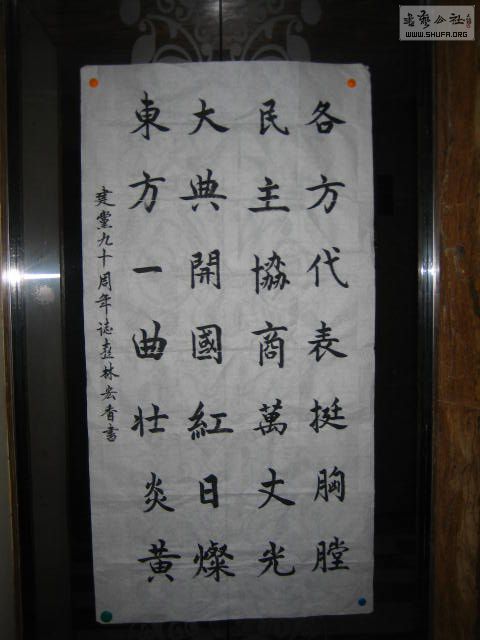 各方代表挺胸膛
民主協商萬丈光
大典開國紅日燦
東方一曲壯炎黃
建黨九十周年誌喜林宏香書
WWW.SHUFA.ORG